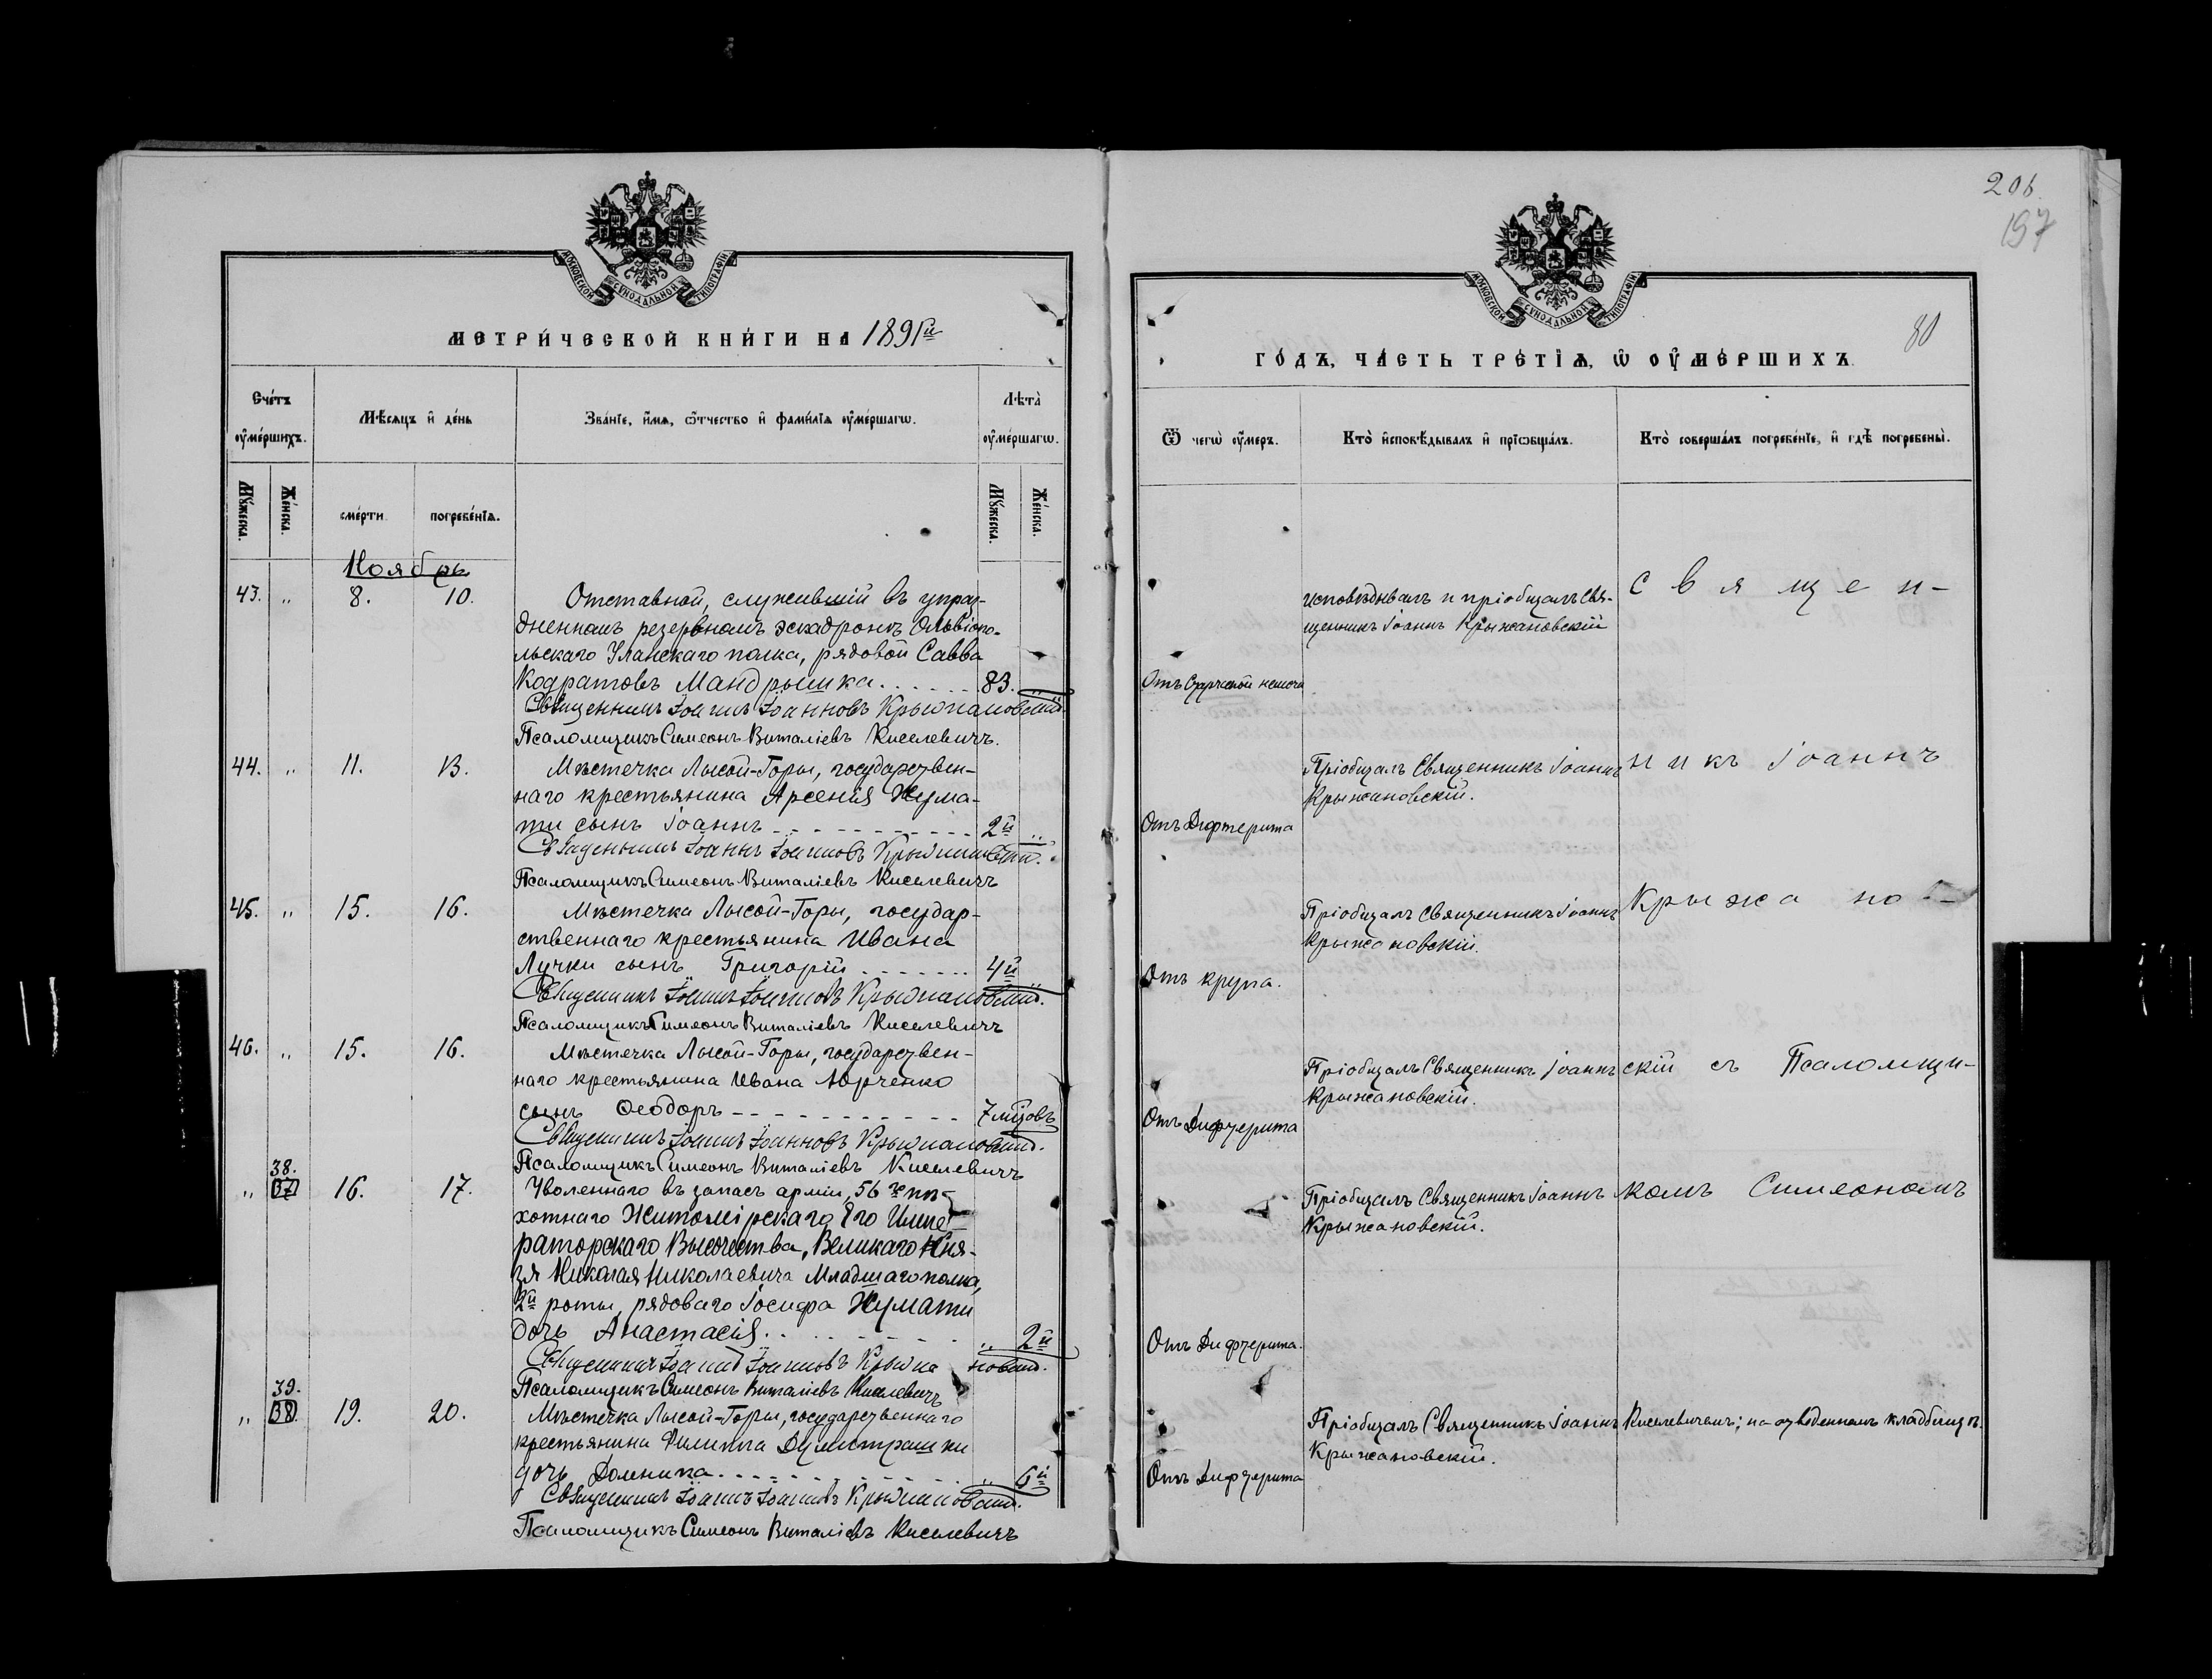 206.
197
80
МОСКОВСКОЙ СѴНОДАЛЬНОЙ ТИПОГРАФІИ
МЕТРИ́ЧЕСКОЙ КНИ́ГИ НА 1891й
Сче́тъ ᲂу҆ме́ршихъ.
Мѣ́сяцъ и҆ де́нь
Зва́нїе, и҆́мѧ, ѻ҆́тчество и҆ фами́лїѧ ᲂу҆ме́ршагѡ.
Лѣ́та ᲂу҆ме́ршагѡ.
Мꙋ́жеска.
Же́нска.
сме́рти
погребе́нїѧ.
Мꙋ́жеска.
Же́нска.
Ноябрь
43. „ 8. 10. Отставной, служившій въ упраз-
дненномъ резервномъ эскадронѣ Ольвіопо-
льскаго Уланскаго полка, рядовой Савва
Кодратовъ Мандрышка . . . . . . 83. „
Священникъ Іоаннъ Іоанновъ Крыжановскій.
Псаломщикъ Симеонъ Виталіевъ Киселевичъ.
44. „ 11. 13. Мѣстечка Лысой-Горы, государствен-
наго крестьянина Арсенія Жума-
ти сынъ Іоаннъ - - - - - - - - - - - 2й „
Священникъ Іоаннъ Іоанновъ Крыжановскій.
Псаломщикъ Симеонъ Виталіевъ Киселевичъ
45. „ 15. 16. Мѣстечка Лысой-Горы, государ-
ственнаго крестьянина Ивана
Лучки сынъ Григорій . . . . . . . 4й „
Священникъ Іоаннъ Іоанновъ Крыжановскій.
Псаломщикъ Симеонъ Виталіевъ Киселевичъ
46. „ 15. 16. Мѣстечка Лысой-Горы, государствен-
наго крестьянина Ивана Юрченко
сынъ Ѳеодоръ - - - - - - - - - - - 7 мцовъ
Священникъ Іоаннъ Іоанновъ Крыжановскій.
Псаломщикъ Симеонъ Виталіевъ Киселевичъ
38.
„ 37 16. 17. Уволеннаго въ запасъ арміи, 56го пѣ-
хотнаго Житомірскаго Его Импе-
раторскаго Высочества, Великаго Кня-
зя Николая Николаевича Младшаго полка,
2й роты, рядоваго Іосифа Жумати
дочь Анастасія . . . . . . . . . „ 2й
Священникъ Іоаннъ Іоанновъ Крыжановскій.
Псаломщикъ Симеонъ Виталіевъ Киселевичъ
39.
„ 38. 19. 20. Мѣстечка Лысой-Горы, государственнаго
крестьянина Филиппа Думитрашки
дочь Домника . . . . . . . . . . „ 6й
Священникъ Іоаннъ Іоанновъ Крыжановскій.
Псаломщикъ Симеонъ Виталіевъ Киселевичъ
МОСКОВСКОЙ СѴНОДАЛЬНОЙ ТИПОГРАФІИ
ГО́ДЪ, ЧА́СТЬ ТРЕ́ТІѦ, Ѡ҆ ОУ҆МЕ́РШИХЪ.
Ѿ чегѡ̀ ᲂу҆́меръ.
Кто̀ и҆сповѣ́дывалъ и҆ прїѡбща́лъ.
Кто̀ соверша́лъ погребе́нїе, и҆ гдѣ̀ погребены̀.
Отъ Старческой немочи
исповѣдывалъ и пріобщалъ Свя-
щенникъ Іоаннъ Крыжановскій
Священ-
Отъ Дифтерита
Пріобщалъ Священникъ Іоаннъ
Крыжановскій.
никъ Іоаннъ
Отъ крупа.
Пріобщалъ Священникъ Іоаннъ
Крыжановскій.
Крыжанов-
Отъ Дифтерита
Пріобщалъ Священникъ Іоаннъ
Крыжановскій.
скій съ Псаломщи-
Отъ Дифтерита.
Пріобщалъ Священникъ Іоаннъ
Крыжановскій.
комъ Симеономъ
Отъ Дифтерита
Пріобщалъ Священникъ Іоаннъ
Крыжановскій.
Киселевичемъ; на отведенномъ кладбищѣ.